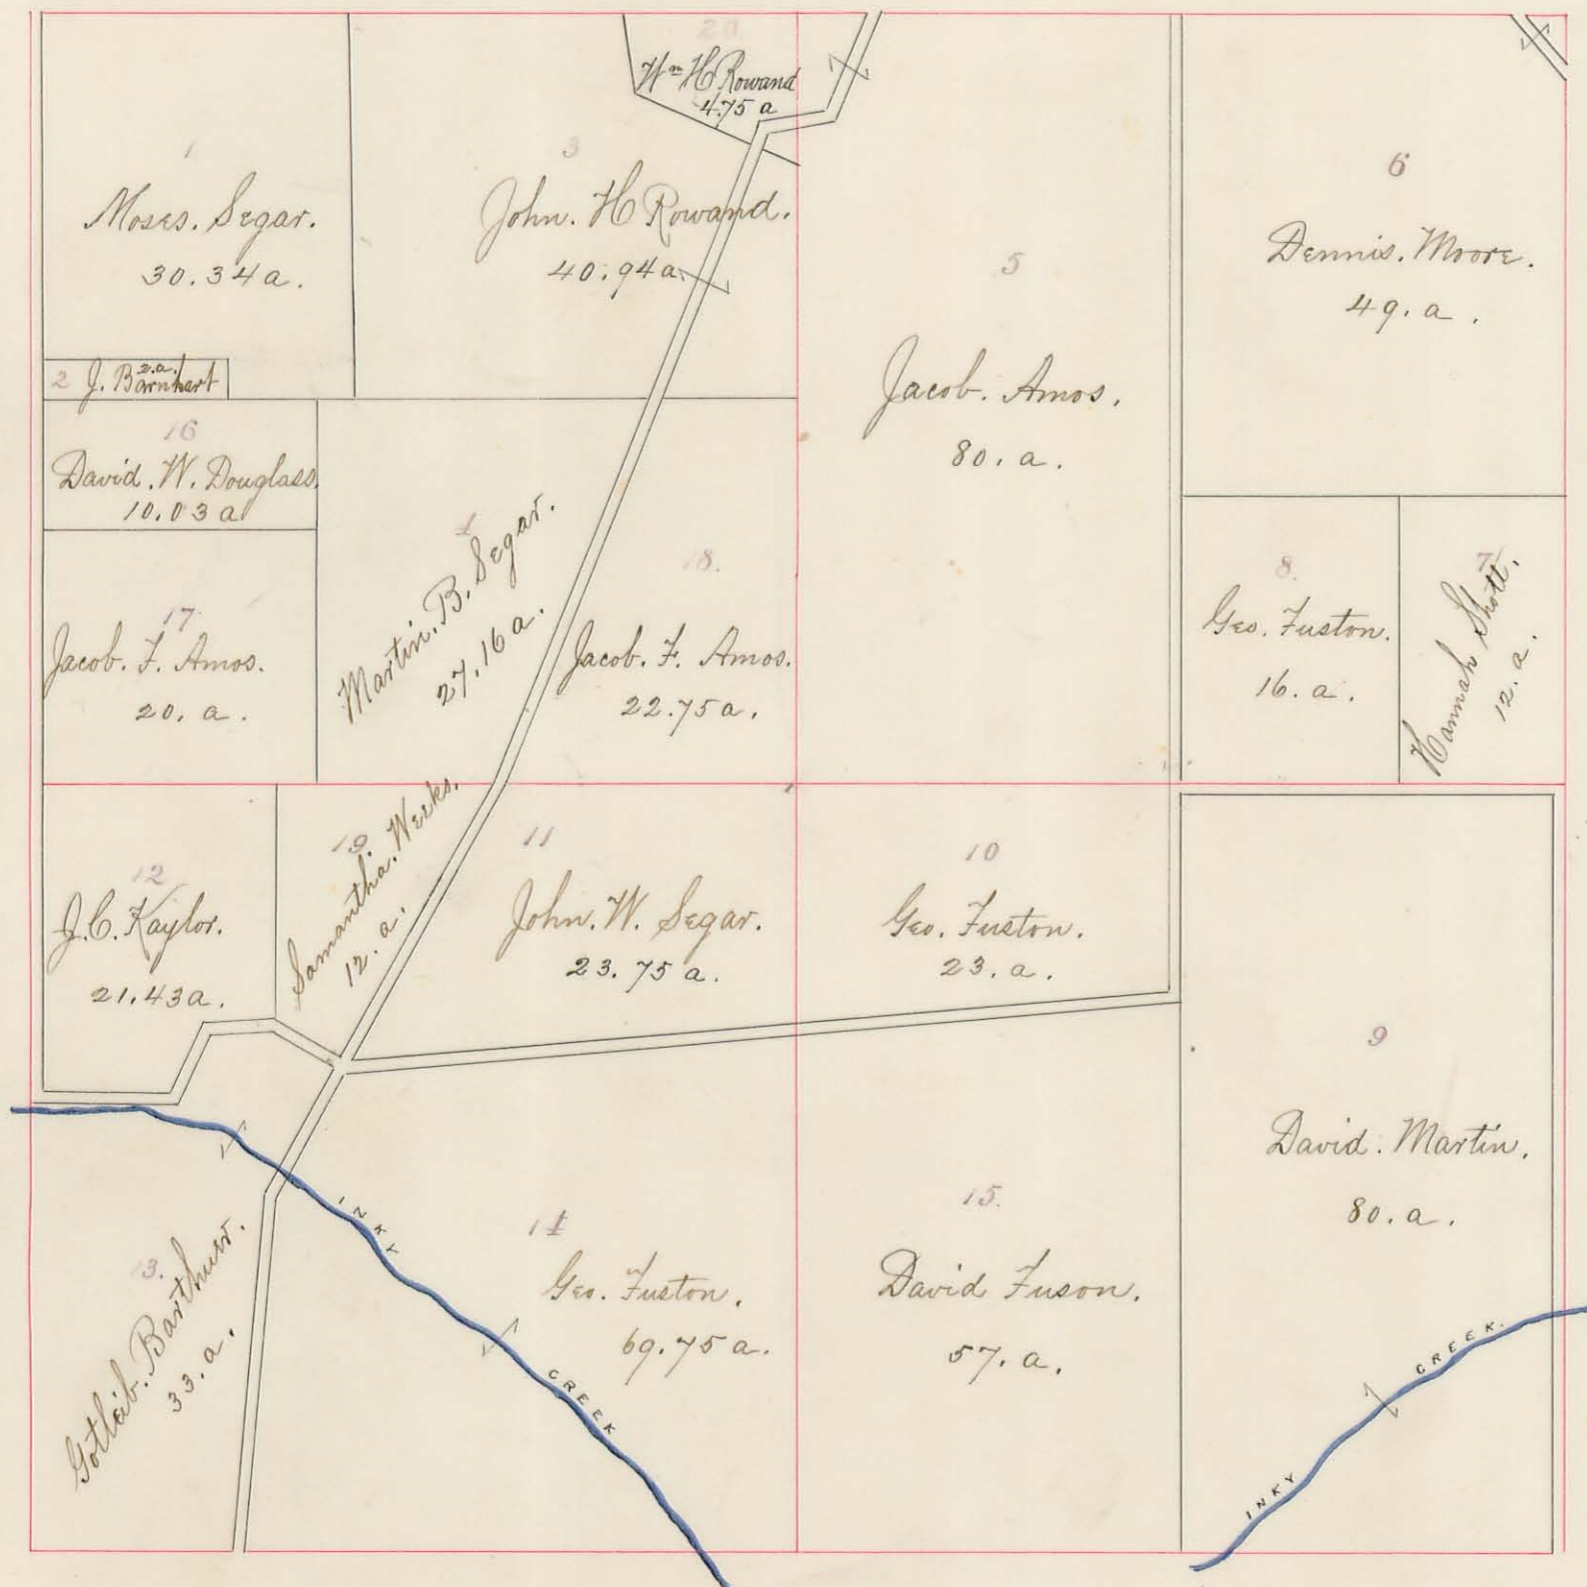 20
Wm H Rowand
4.75 a
1
Moses. Segar.
30.34 a.
3
John. H Rowand.
40.94 a.
5
Jacob. Amos.
80. a.
6
Dennis. Moore.
49. a.
2 J. Barnhart
2.a.
16
David. W. Douglass.
10.03 a
17
Jacob. F. Amos.
20. a.
4
Martin. B. Segar.
27.16 a.
18.
Jacob. F. Amos.
22.75 a.
8.
Geo. Fuston.
16. a.
7
Hannah Shott.
12. a.
12
J. C. Kaylor.
21.43 a.
19.
Samantha. Weeks.
12. a.
11
John. W. Segar.
23.75 a.
10
Geo. Fuston.
23. a.
9
David. Martin.
80. a.
13.
33. a.
14
Geo. Fuston.
69.75 a.
15.
David Fuson.
57. a.
INKY CREEK
INKY CREEK.